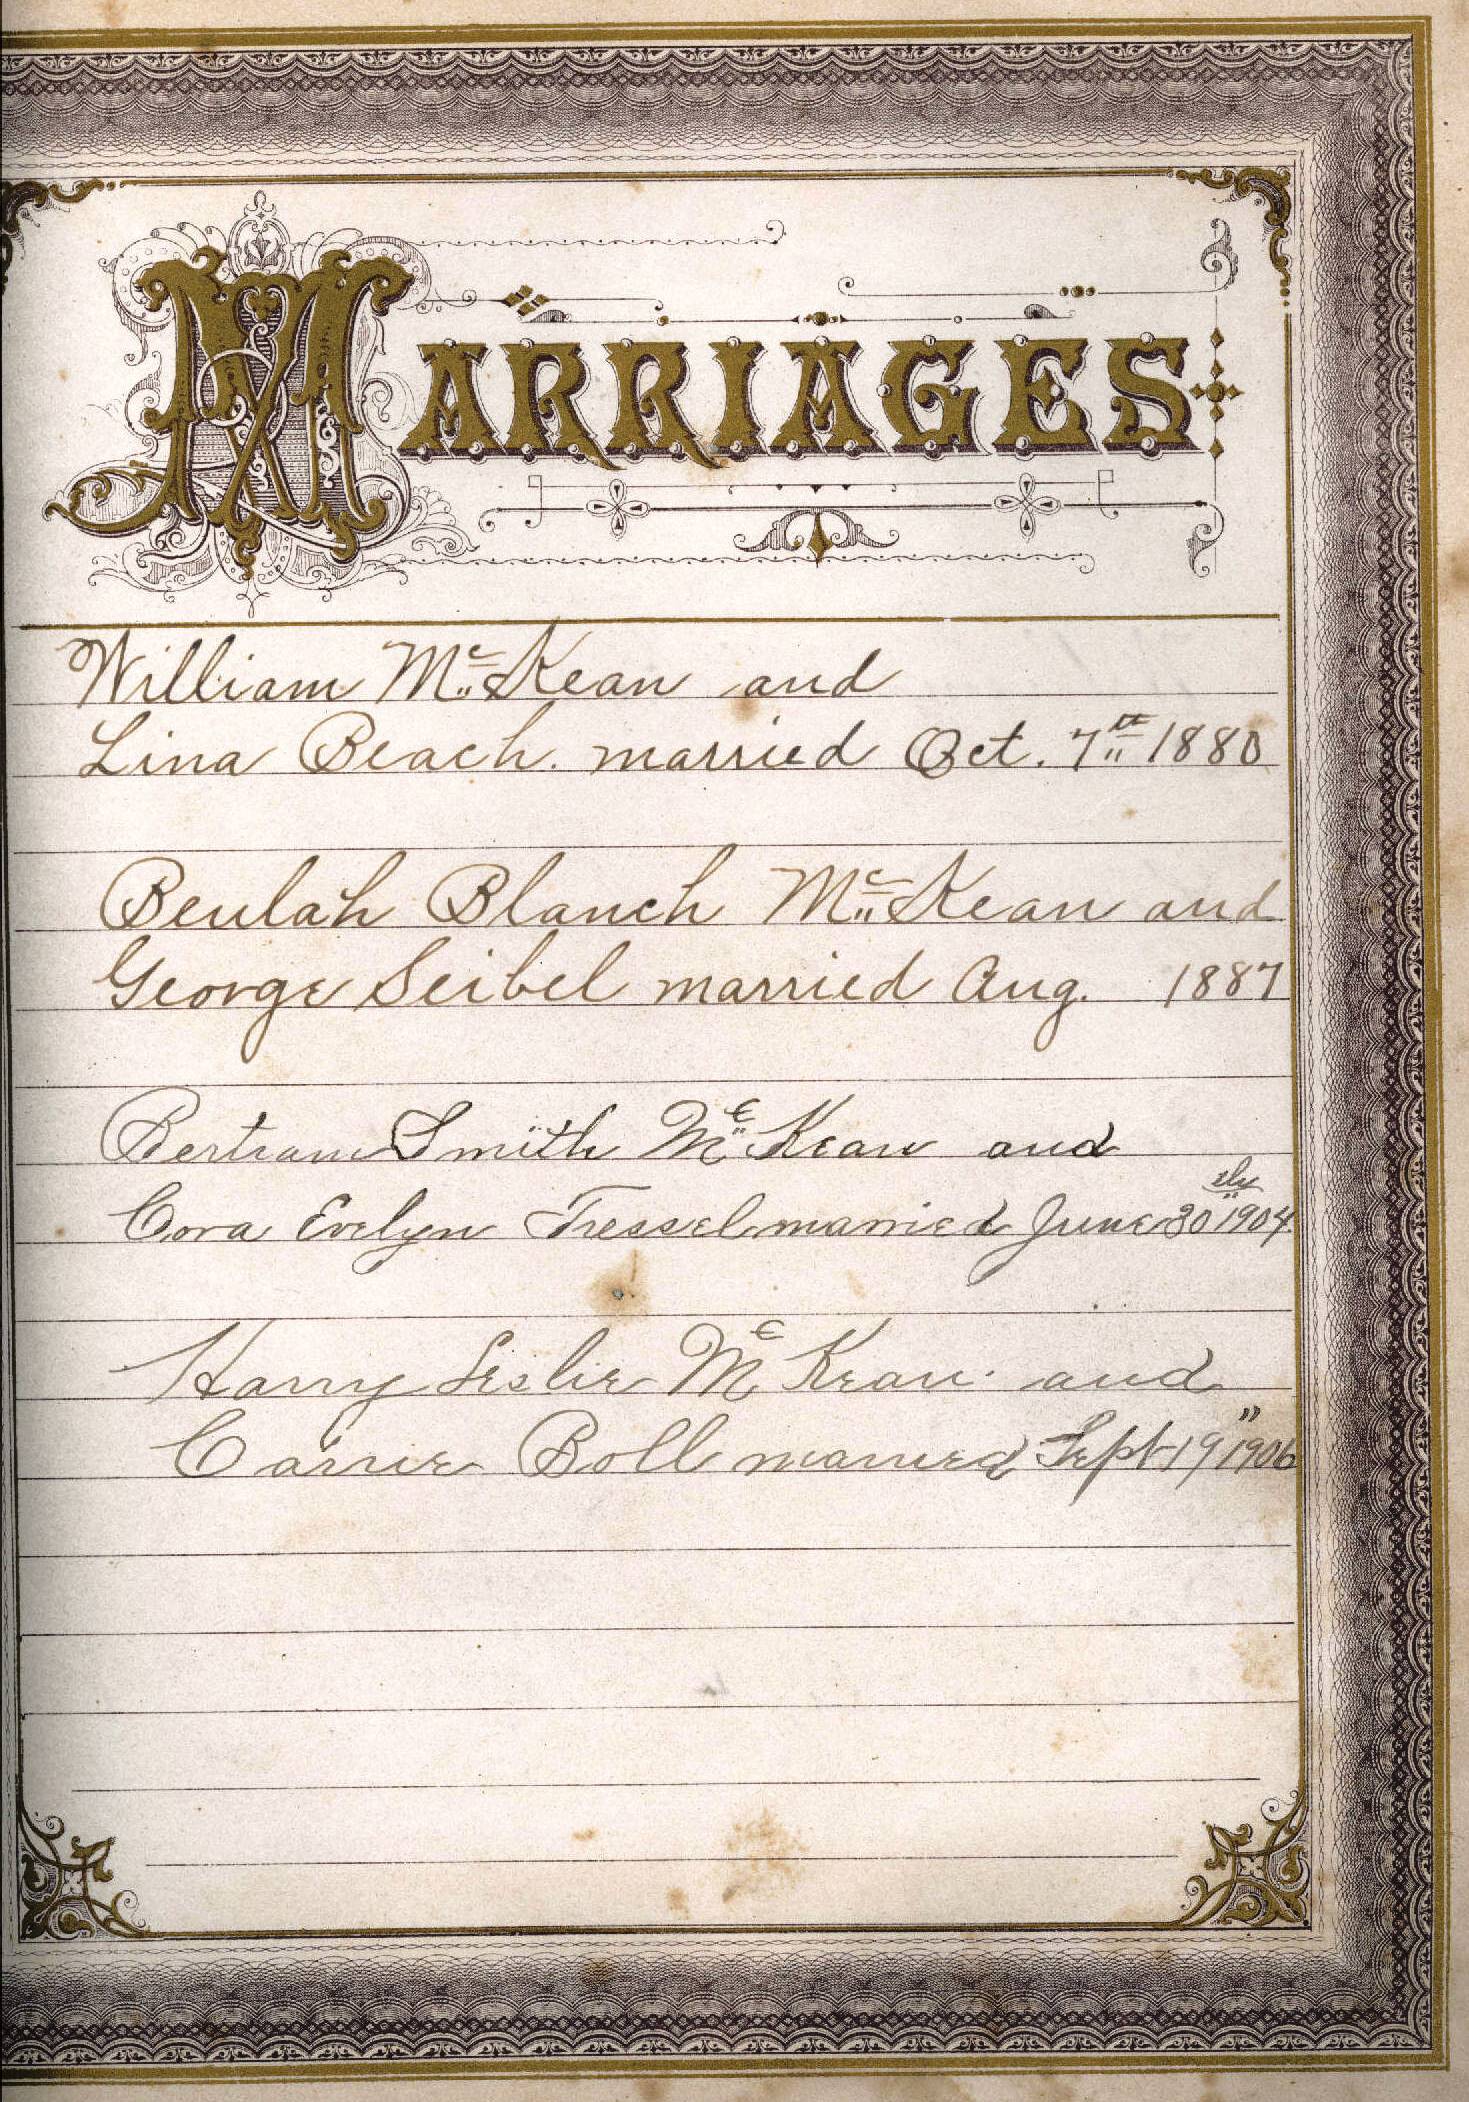 MARRIAGES
William McKean and
Lina Beach. married Oct. 7th 1880
Beulah Blanch McKean and
George Seibel married Aug. 1887
Bertram Smith McKean and
Cora Evelyn Tressel married June 30th 1904.
Harry Leslie McKean. and
Carrie Boll married Sept 19" 1906